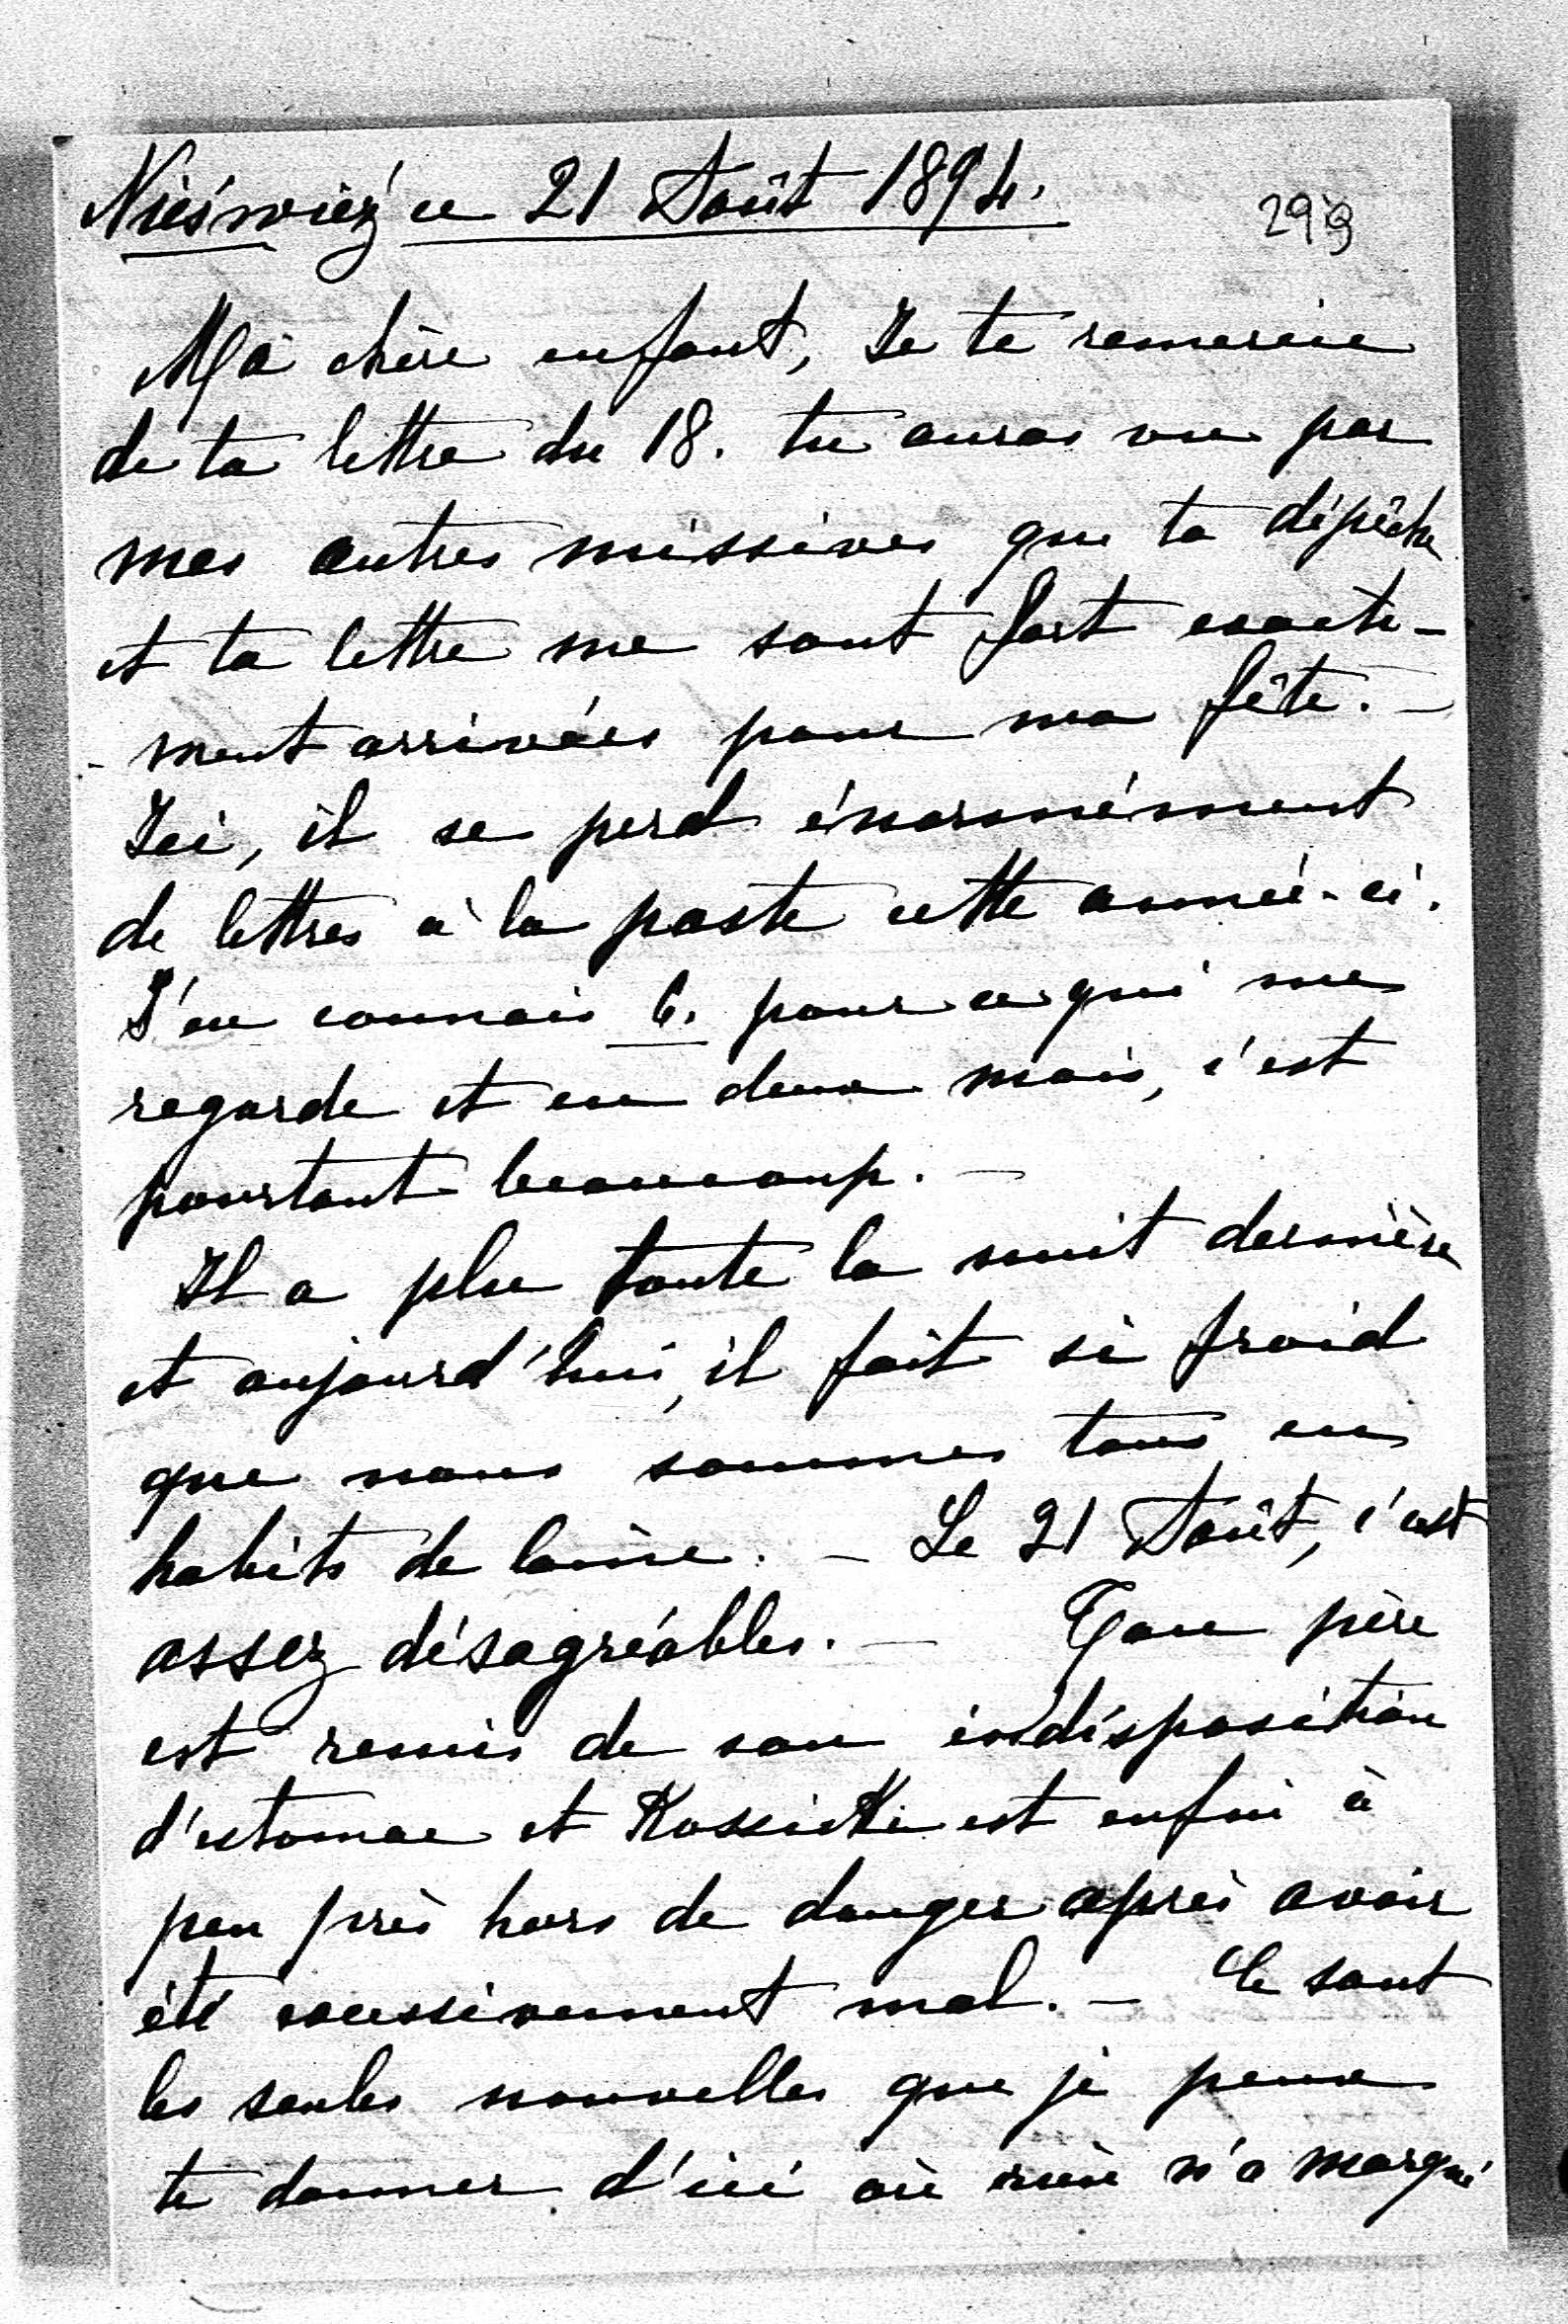 Nieśwież ce 21 Août 1894.
299
Ma chère enfant, Je te remercie
de ta lettre du 18. tu auras vu par
mes autres missives que ta dépêche
et ta lettre me sont fort exacte-
- ment arrivées pour ma fête. -
Ici, il se perd énormément
de lettres à la poste cette année-ci.
J'en connais 6. pour ce qui me
regarde et en deux mois, c'est
pourtant beaucoup. -
Il a plu toute la nuit dernière
et aujourd'hui, il fait si froid
que nous sommes tous en
habits de laine. - Le 21 Août, c'est
assez désagréable. - Ton père
est remis de son indisposition
d'estomac et Kossicki est enfin à
peu près hors de danger après avoir
été excessivement mal. - Ce sont
les seules nouvelles que je peux
te donner d'ici où rien n'a marqué